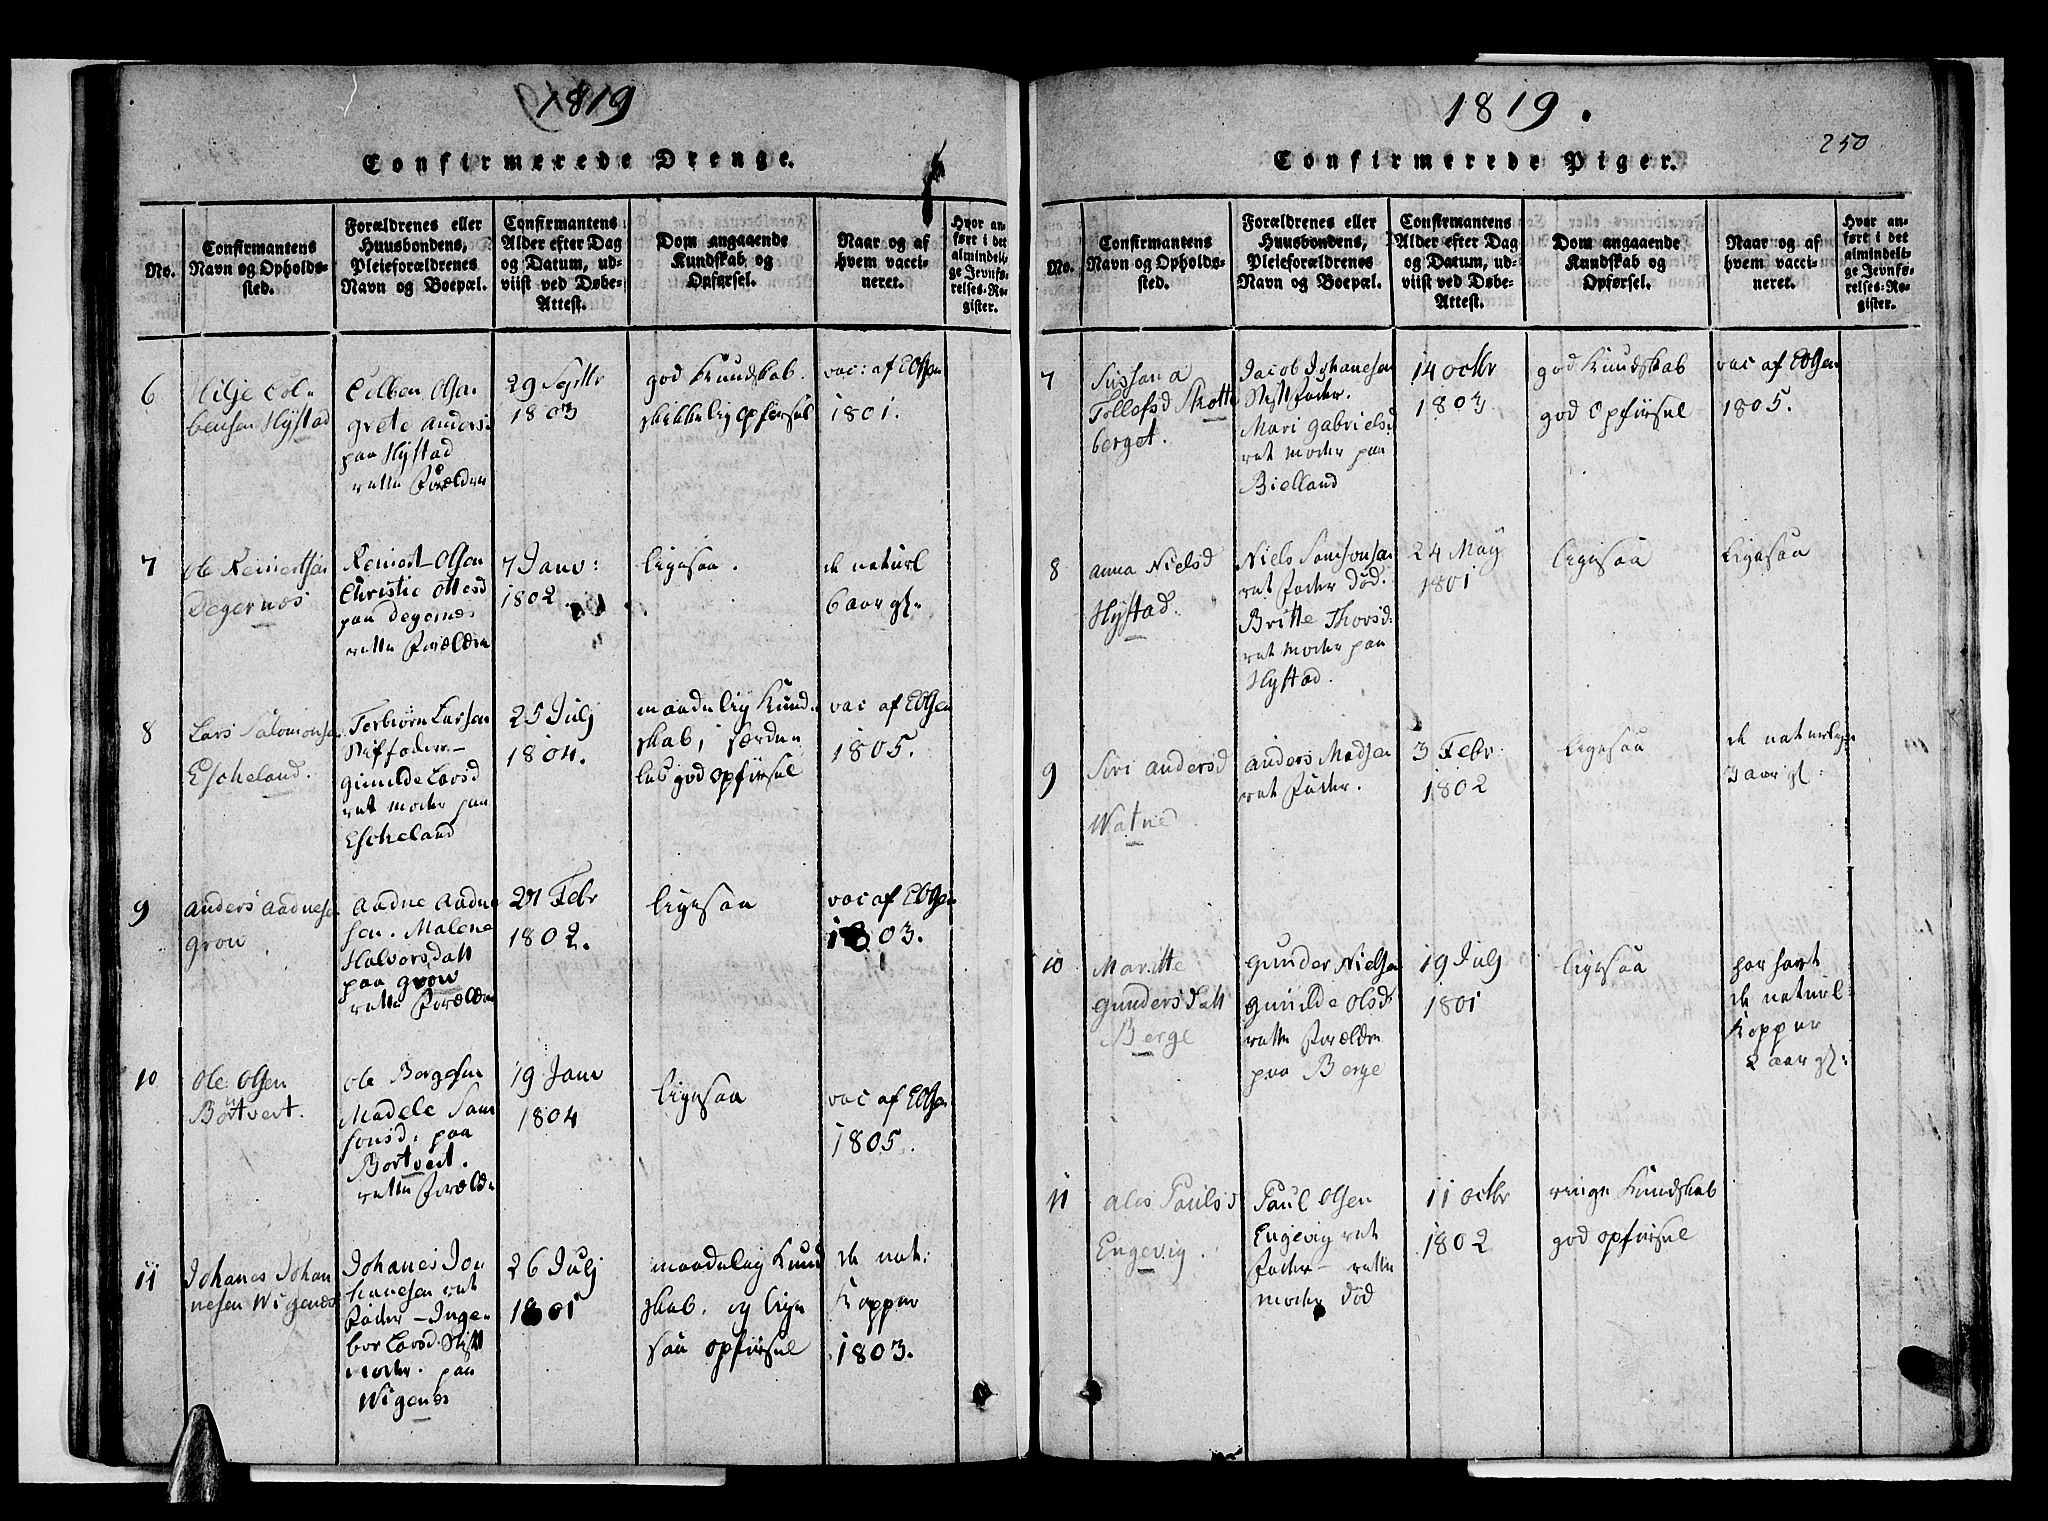 1819
Confirmerede Drenge.
No.
Confirmantens
Navn og Opholds-
sted.
Forældrenes eller
Huusbondens,
Pleieforældrenes
Navn og Boepæl.
Confirmantens
Alder efter Dag
og Datum, ud-
viist ved Døbe-
Attest.
Dom angaaende
Kundskab og
Opførsel.
Naar og af
hvem vacci-
neret.
Hvor an-
ført i det
almindeli-
ge Jevnfø-
relses-Re-
gister.
6
Hilje Col-
bensen Hystad
Colben Olsen
Grete Anders
paa Hystad
rette Forældre
29 Septbr
1803
god Kundskab.
skikkelig opførsel
vac: af EOlsen
1801.
7
Ole Reinertsen
Degernes
Reinert Olsen
Christie Ottesd
paa Degernes
rette Forældre
7 Janv:
1802
ligesaa.
de naturl
6 aar gl.
8
Lars Salomonsen
Escheland.
Terbiørn Larsen
Stiffader-
Gunilde Larsd
ret moder paa
Escheland
25 Julj
1804.
maadelig Kund-
skab, særde
les god opførsel
vac af EOlsen
1805.
9
Anders Aadnesen
Grow
Aadne Aadne
sen. Malene
Halvorsdatt
paa Grow
rette Forældre
27 Febr
1802.
ligesaa
vac af EOlsen
1803.
10
Ole Olsen
Bortvert.
Ole Borgesen
Madele Sam
sonsd: paa
Bortvert.
rette Forældre
19 Janv
1804
ligesaa
vac af EOlsen
1805.
11
Johanes Johan
nesen Wigenes
Johanes Jo
hanesen ret
Fader - Inge-
bor Larsd. Stif
moder. paa
Wigenes
26 Julj
1801
maadelig Kund
skab. og lige
saa opførsel
de nat:
Kopper
1803.
1819.
250
Confirmerede Piger.
No.
Confirmantens
Navn og Opholds-
sted.
Forældrenes eller
Huusbondens,
Pleieforældrenes
Navn og Boepæl.
Confirmantens
Alder efter Dag
og Datum, ud-
viist ved Døbe-
Attest.
Dom angaaende
Kundskab og
Opførsel.
Naar og af
hvem vacci-
neret.
Hvor an-
ført i det
almindeli-
ge Jevnfø-
relses-Re-
gister.
7
Sussana
Tollefsd Skotte
berget.
Jacob Johanesen
Stiffader.
Mari Gabrielsd
ret moder paa
Bielland
14 octbr
1803
god Kundskab
god Opførsel
vac af EOlsen
1805.
8
Anna Nielsd
Hystad.
Niels Samsonsen
ret Fader död.
Britte Thorsd:
ret moder paa
Hystad.
24 May
1801
ligesaa
ligesaa
9
Siri Andersd
Watned
Anders Madsen
ret Fader.
3 Febr
1802
ligesaa
de naturlige
3 aar gl:
10
Maritte
Gundersdatt
Berge
Gunder Nielsen
Gunilde Olsd:
rette Forældre
paa Berge
19 Julj
1801
ligesaa
har havt
de naturl:
Kopper
2 aar gl:
11
Ales Paulsd
Engevig.
Paul Olsen
Engevig ret
Fader - rette
moder död
11 octbr
1802
ringe Kundskab
god opførsel